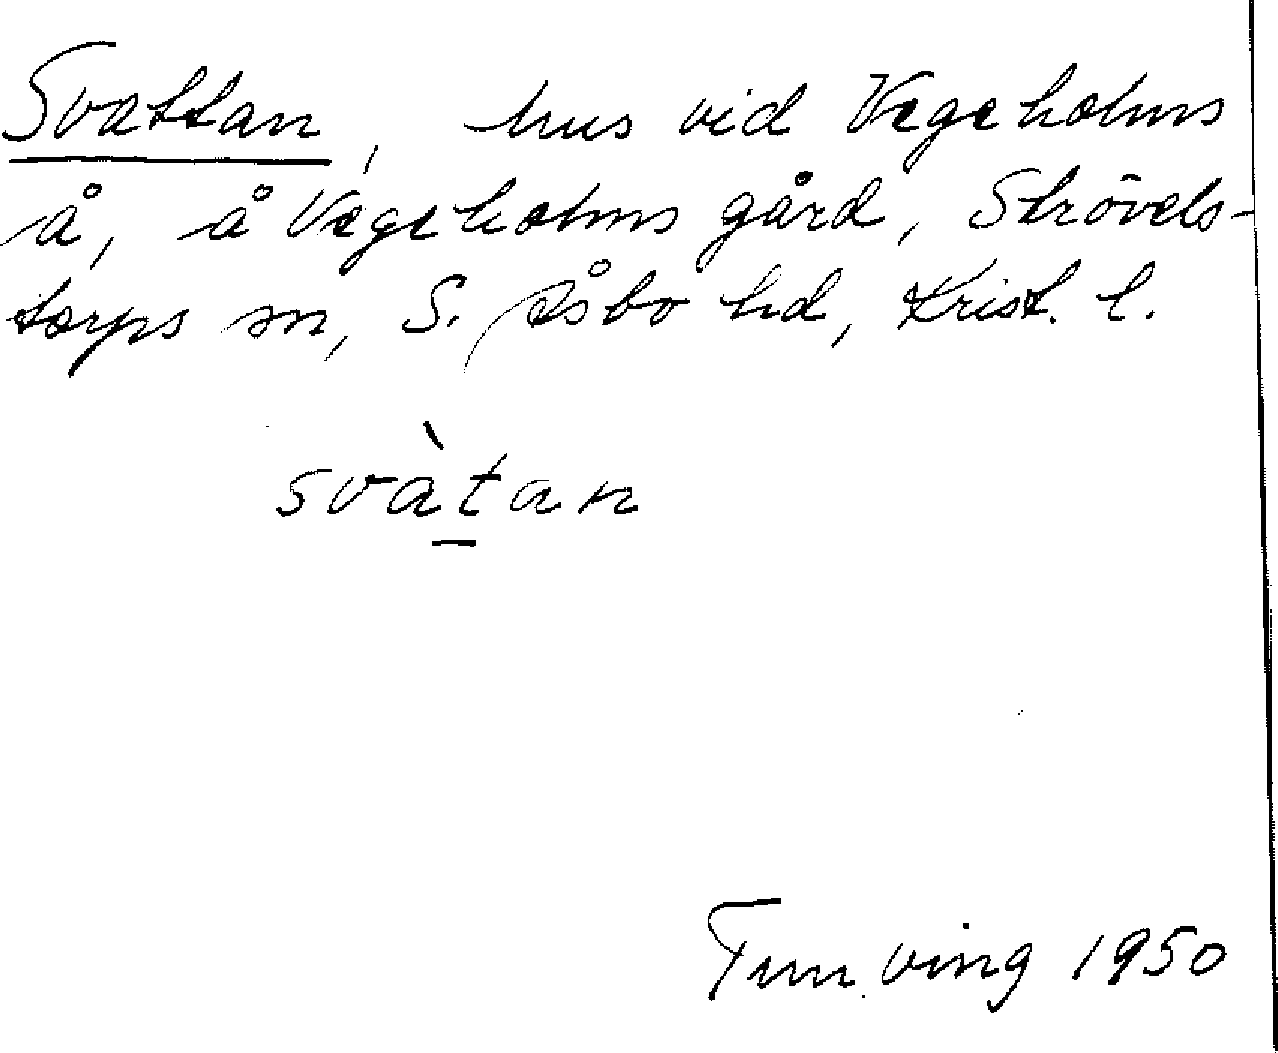 Svattan, hus vid Vegeholms
å, å Vegeholms gård, Strövels-
torps sn, S. Åsbo hd, Krist. l.
svàtan
ving 1950